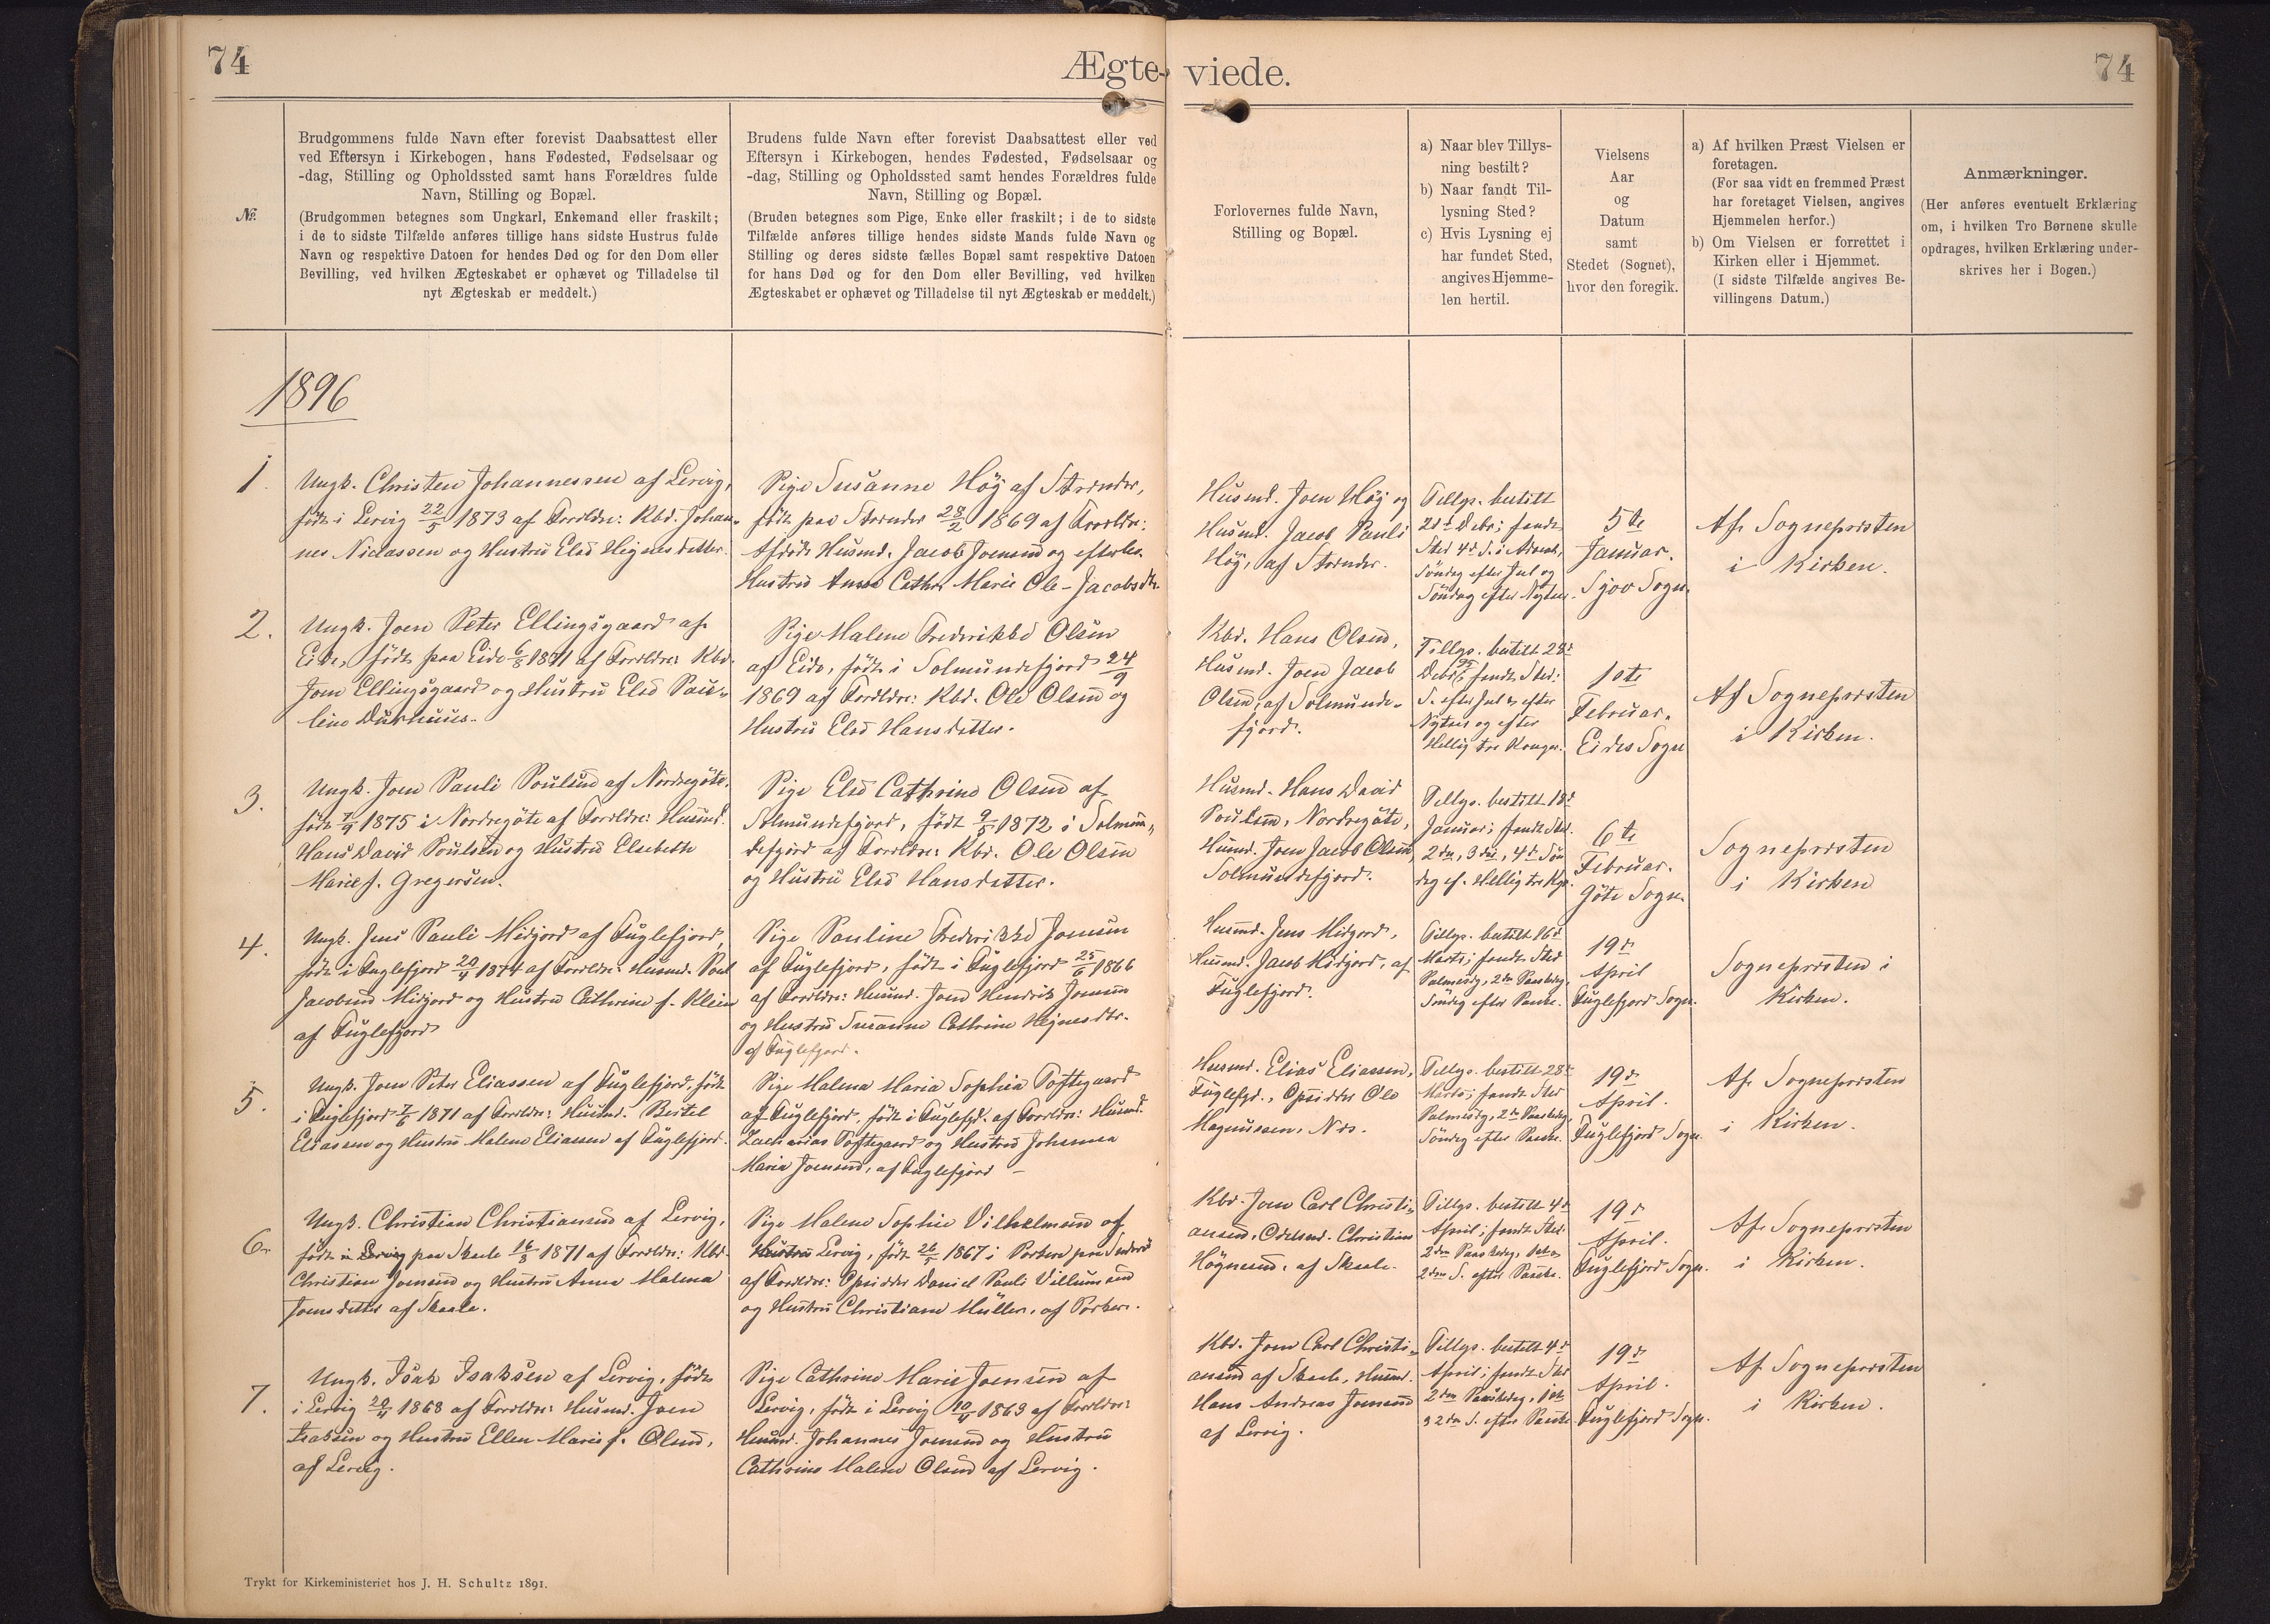 74
Ægte-
viede.
74
№.
Brudgommens fulde Navn efter forevist Daabsattest eller
ved Eftersyn i Kirkebogen, hans Fødested, Fødselsaar og
-dag, Stilling og Opholdssted samt hans Forældres fulde
Navn, Stilling og Bopæl.
(Brudgommen betegnes som Ungkarl, Enkemand eller fraskilt;
i de to sidste Tilfælde anføres tillige hans sidste Hustrus fulde
Navn og respektive Datoen for hendes Død og for den Dom eller
Bevilling, ved hvilken Ægteskabet er ophævet og Tilladelse til
nyt Ægteskab er meddelt.)
Brudens fulde Navn efter forevist Daabsattest eller ved
Eftersyn i Kirkebogen, hendes Fødested, Fødselsaar og
-dag, Stilling og Opholdssted samt hendes Forældres fulde
Navn, Stilling og Bopæl.
(Bruden betegnes som Pige, Enke eller fraskilt; i de to sidste
Tilfælde anføres tillige hendes sidste Mands fulde Navn og
Stilling og deres sidste fælles Bopæl samt respektive Datoen
for hans Død og for den Dom eller Bevilling, ved hvilken
Ægteskabet er ophævet og Tilladelse til nyt Ægteskab er meddelt.)
Forlovernes fulde Navn,
Stilling og Bopæl.
a) Naar blev Tillys-
ning bestilt?
b) Naar fandt Til-
lysning Sted?
c) Hvis Lysning ej
har fundet Sted,
angives Hjemme-
len hertil.
Vielsens
Aar
og
Datum
samt
Stedet (Sognet),
hvor den foregik.
a) Af hvilken Præst Vielsen er
foretagen.
(For saa vidt en fremmed Præst
har foretaget Vielsen, angives
Hjemmelen herfor.)
b) Om Vielsen er forrettet i
Kirken eller i Hjemmet.
(I sidste Tilfælde angives Be-
villingens Datum.)
Anmærkninger.
(Her anføres eventuelt Erklæring
om, i hvilken Tro Børnene skulle
opdrages, hvilken Erklæring under-
skrives her i Bogen.)
1896
1.
Ungk. Christen Johannessen af Lervig,
født i Lervig 22/5 1873 af Forældre: Kbd. Johan-
nes Niclassen og Hustru Else Hejnesdatter.
Pige Susanne Høj af Strender,
født paa Strender 28/2 1869 af Forældre:
Afdøde Husmd. Jacob Joensen og efterlev.
Hustru Anne Cathr. Marie Ole-Jacobsdtr.
Husmd. Joen Høj og
Husmd. Jacob Pauli
Høj, af Strender.
Tillys. bestilt
Decbr; fandt
Sted 4de S. i Advent,
Søndag efter Jul og
Søndag efter Nytaar.
5te
Januar.
Sjov Sogn.
Af Sognepræsten
i Kirken.
2.
Ungk. Joen Peter Ellingsgaard af
Eide, født paa Eide 6/8 1871 af Forældre: Kbd.
Joen Ellingsgaard og Hustru Else Pau-
line Durhuus.
Pige Malene Frederikke Olsen
af Eide, født i Solmundefjord 24/9
1869 af Forældre: Kbd. Ole Olsen og
Hustru Else Hansdatter.
Kbd. Hans Olsen,
Husmd. Joen Jacob
Olsen, af Solmunde-
fjord.
Tillys. bestilt 28de
Decbr 95; fandt Sted:
S. efter Jul, efter
Nytaar og efter
Hellig tre Konger.
1ste
Februar.
Eides Sogn
Af Sognepræsten
i Kirken.
3.
Ungk. Joen Pauli Poulsen af Nordregøte,
født 7/9 1875 i Nordregøte af Forældre: Husmd.
Hans David Poulsen og Hustru Elsebeth
Marie f. Gregersen.
Pige Else Cathrine Olsen af
Solmundefjord, født 9/5 1872 i Solmun-
defjord af Forældre: Kbd. Ole Olsen
og Hustru Else Hansdatter.
Husmd. Hans David
Poulsen, Nordregøte,
Husmd. Joen Jacob Olsen,
Solmundefjord.
Tillys. bestilt 18de
Januar; fandt Sted.
2den, 3die, 4de Søn
dag ef. Hellig tre Kgr.
6te
Februar.
Gøte Sogn.
Sognepræsten
i Kirken
4.
Ungk. Jens Pauli Midjord af Fuglefjord,
født i Fuglefjord 20/4 1874 af Forældre: Husmd. Poul
Jacobsen Midjord og Hustru Cathrine f. Klein
af Fuglefjord
Pige Pauline Frederikke Joensen
af Fuglefjord, født i Fuglefjord 25/6 1866
af Forældre: Husmd. Joen Hendrik Joensen
og Hustru Susanne Cathrine Hejnesdtr.
af Fuglefjord.
Husmd. Jens Midjord,
Husmd. Jacob Midjord, af
Fuglefjord.
Tillys. bestilt 16de
Marts; fandt Sted
Palmesdg, 2den Paaskedg,
Søndag efter Paaske.
19de
April
Fuglefjord Sogn.
Sognepræsten i
Kirken.
5.
Ungk. Joen Peter Eliassen af Fuglefjord, født
i Fuglefjord 7/6 1871 af Forældre: Husmd. Bertel
Eliassen og Hustru Malene Eliassen af Fuglefjord.
Pige Malena Maria Sophia Toftegaard
af Fuglefjord, født i Fuglefjd. af Forældre: Husmd.
Zacharias Toftegaard og Hustru Johanna
Maria Joensen, af Fuglefjord –
Husmd. Elias Eliassen,
Fuglefjd., Opsidder Ole
Magnussen, Nds.
Tillys. bestilt 28de
Marts; fandt Sted
Palmesdg, 2den Paaskedg,
Søndag efter Paaske.
19de
April.
Fuglefjord Sogn.
Af Sognepræsten
i Kirken.
6.
Ungk. Christian Christiansen af Lervig,
født i Lervig paa Skaale 16/3 1871 af Forældre: Kbd.
Christian Joensen og Hustru Anna Malena
Joensdatter af Skaale.
Pige Malene Sophie Vilhelmsen af
Hustru Lervig, født 26/5 1867 i Porkere paa Suderø
af Forældre: Opsidder Daniel Pauli Villumsen
og Hustru Christiane Müller, af Porkere.
Kbd. Joen Carl Christi-
ansen, Odelsmd. Christian
Høgnesen, af Skaale.
Tillys. bestilt 4de
April; fandt Sted
2den Paaskedag, 1ste
2den S. efter Paaske.
19de
April.
Fuglefjord Sogn.
Af Sognepræsten
i Kirken.
7.
Ungk. Isak Isaksen af Lervig, født
i Lervig 20/4 1868 af Forældre: Husmd. Joen
Isaksen og Hustru Ellen Marie f. Olsen,
af Lervig.
Pige Cathrine Marie Joensen af
Lervig, født i Lervig 10/4 1863 af Forældre:
Husmd. Johannes Joensen og Hustru
Cathrine Malene Olsen af Lervig.
Kbd. Joen Carl Christi-
ansen af Skaale, Husmd.
Hans Andreas Joensen
af Lervig.
Tillys. bestilt 4de
April; fandt Sted
2den Paaskedag, 1ste
& 2den S. efter Paaske
19de
April.
Fuglefjord Sogn.
Af Sognepræsten
i Kirken.
Trykt for Kirkeministeriet hos J. H. Schultz 1891.